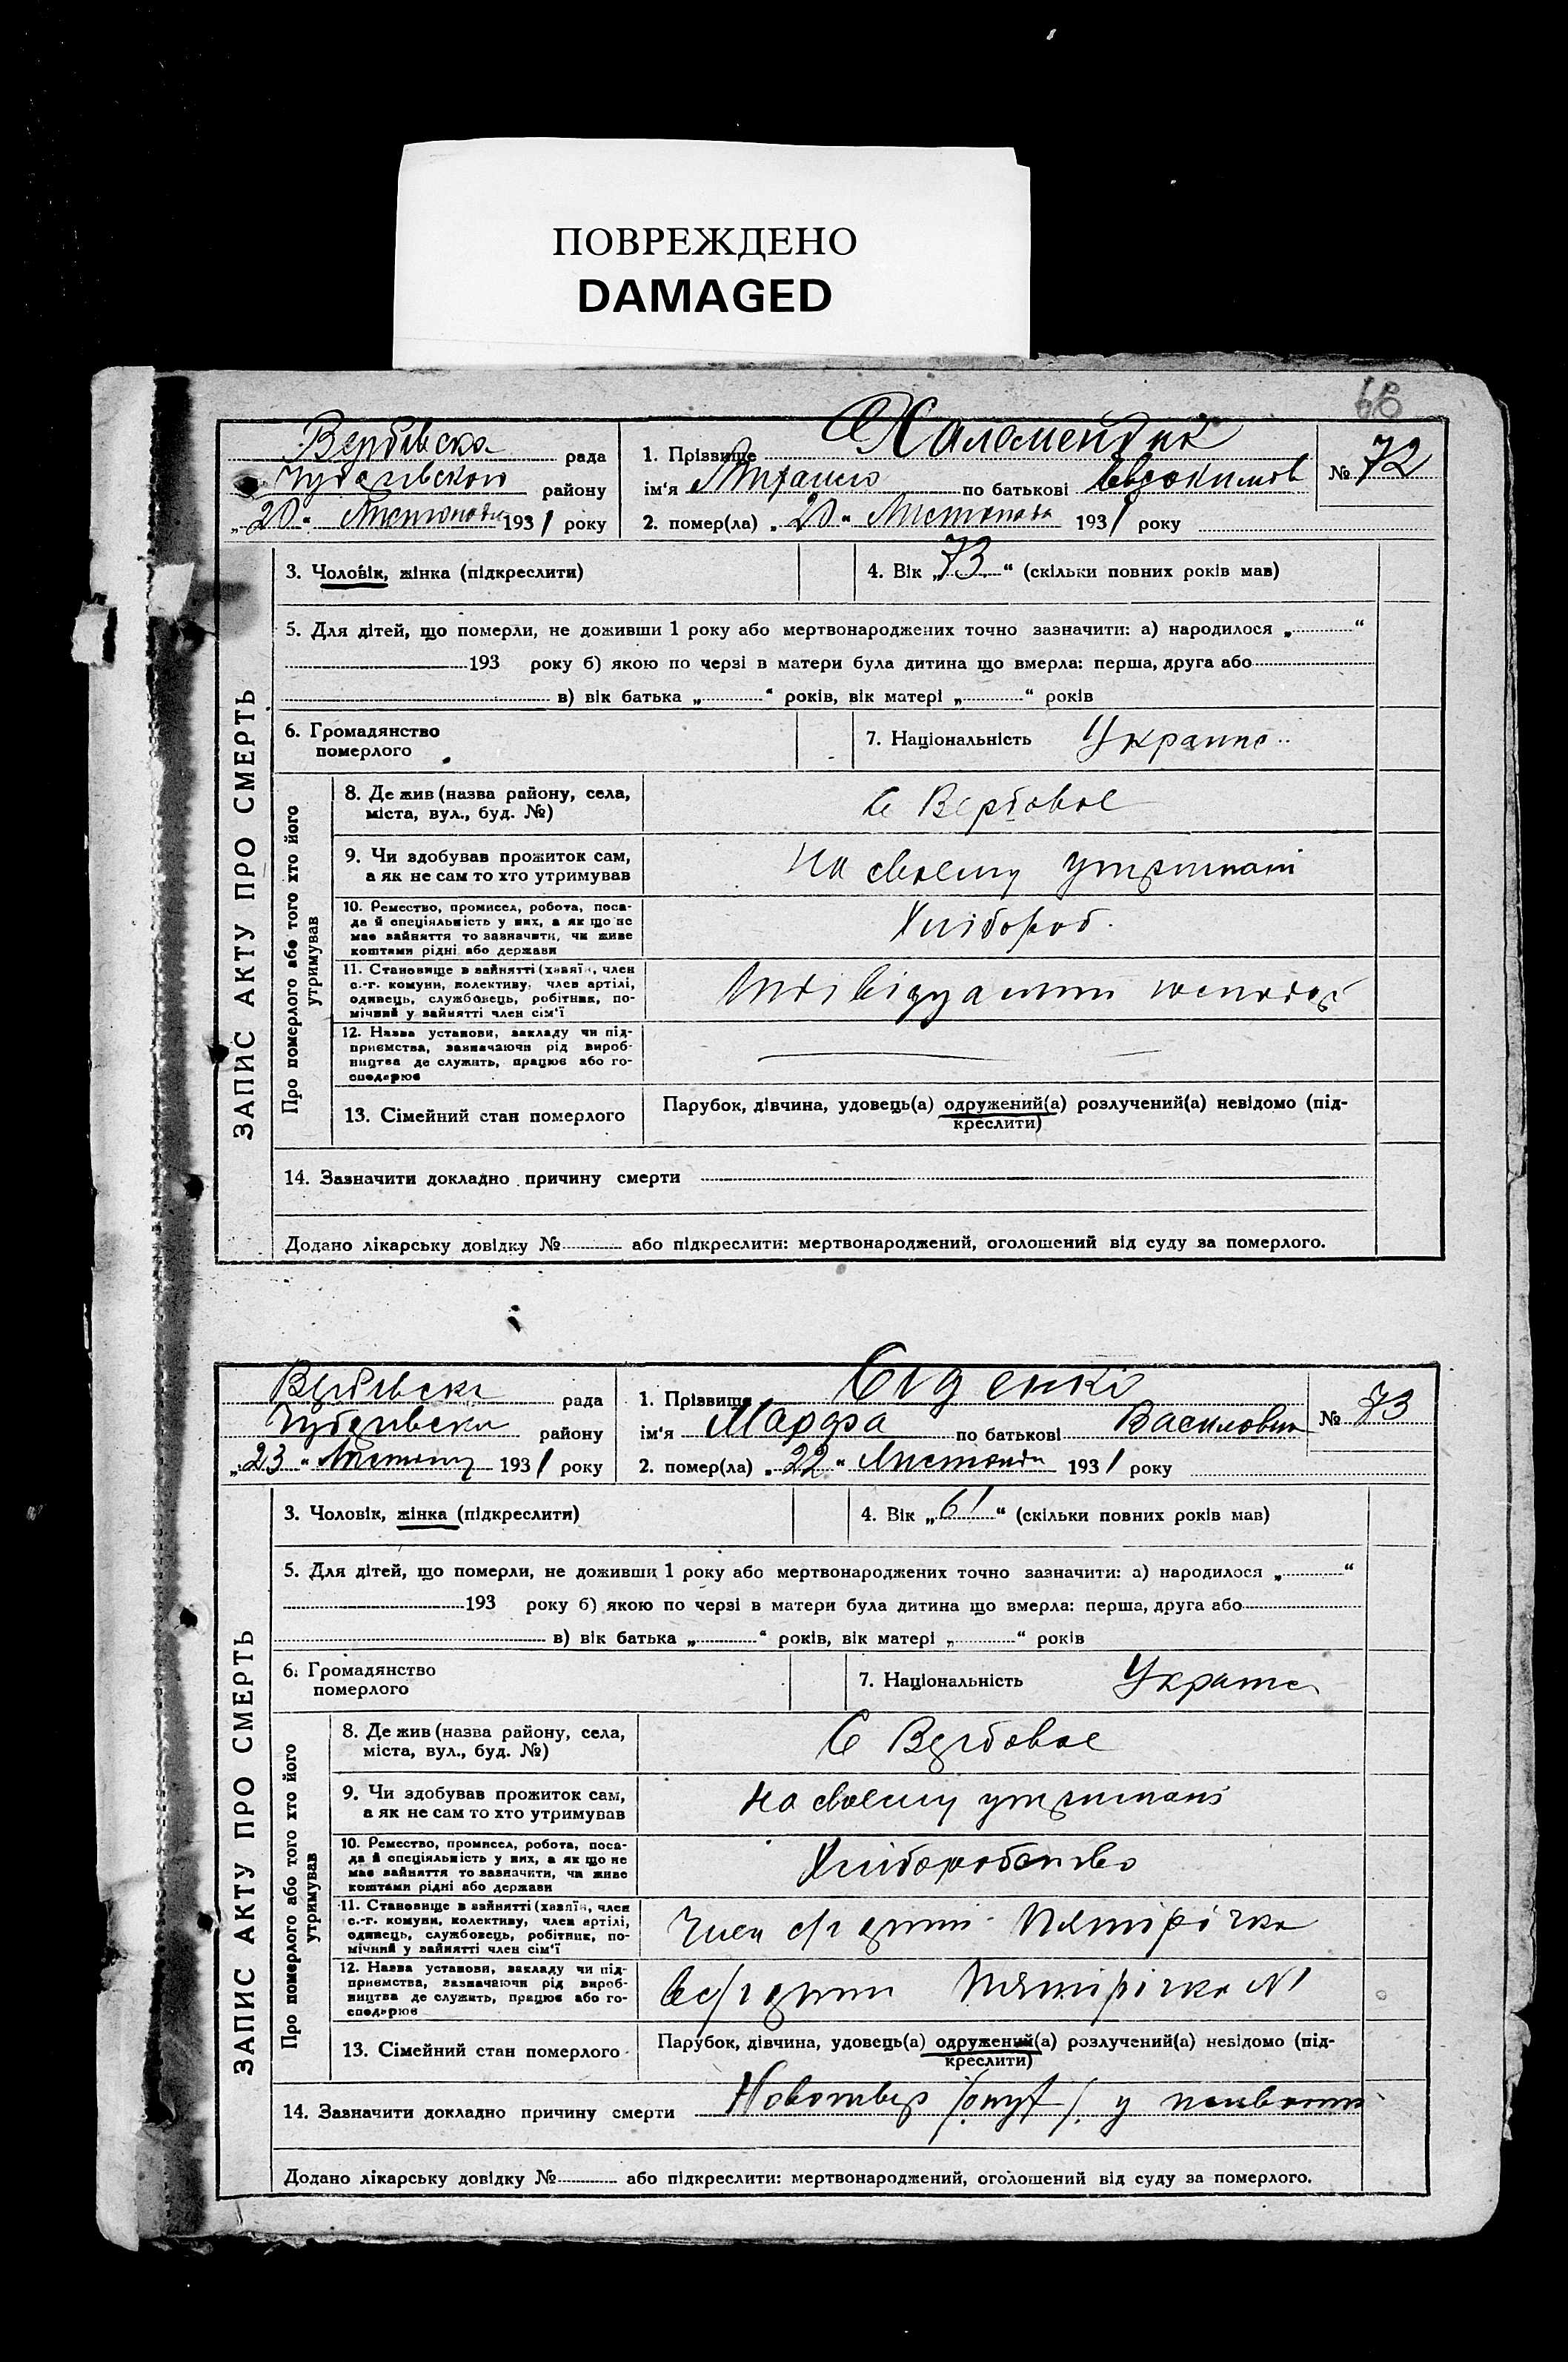 ПОВРЕЖДЕНО
DAMAGED
68
Вербівська рада
району
„20“ Листопада 1931 року
1. Прізвище Халамендик
ім'я Михайло по батькові Евдокимов
№ 72
2. помер(ла) „20“ Листопада 1931 року
3. Чоловік, жінка (підкреслити)
4. Вік „73“ (скільки повних років мав)
5. Для дітей, що померли, не доживши 1 року або мертвонароджених точно зазначити: а) народилося „ “
193 року б) якою по черзі в матери була дитина що вмерла: перша, друга або
в) вік батька „ “ років, вік матері „ “ років
6. Громадянство
померлого
7. Національність Украине
ЗАПИС АКТУ ПРО СМЕРТЬ
Про померлого або того хто його
утримував
8. Де жив (назва району, села,
міста, вул., буд. №)
С Вербовое
9. Чи здобував прожиток сам,
а як не сам то хто утримував
на своєму утримані
10. Ремество, промисел, робота, поса-
да й спеціяльність у них, а як що не
має зайняття то зазначити, чи живе
коштами рідні або держави
Хлібороб
11. Становище в зайнятті (хазяїн, член
с.-г. комуни, колективу, член артілі,
одинець, службовець, робітник, по-
мічний у зайнятті член сім'ї
12. Назва установи, закладу чи під-
приємства, зазначаючи рід вироб-
ництва де служить, працює або го-
сподарює
13. Сімейний стан померлого
Парубок, дівчина, удовець(а) одружений(а) розлучений(а) невідомо (під-
креслити)
14. Зазначити докладно причину смерти
Додано лікарську довідку № або підкреслити: мертвонароджений, оголошений від суду за померлого.
Вербівська рада
району
„23“ Листопад 1931 року
1. Прізвище
ім'я Марфа по батькові Василовна
№ 73
2. помер(ла) „22“ Листопада 1931 року
3. Чоловік, жінка (підкреслити)
4. Вік „61“ (скільки повних років мав)
5. Для дітей, що померли, не доживши 1 року або мертвонароджених точно зазначити: а) народилося „ “
193 року б) якою по черзі в матери була дитина що вмерла: перша, друга або
в) вік батька „ “ років, вік матері „ “ років
6. Громадянство
померлого
7. Національність Украине
ЗАПИС АКТУ ПРО СМЕРТЬ
Про померлого або того хто його
утримував
8. Де жив (назва району, села,
міста, вул., буд. №)
С Вербовое
9. Чи здобував прожиток сам,
а як не сам то хто утримував
на своєму утримані
10. Ремество, промисел, робота, поса-
да й спеціяльність у них, а як що не
має зайняття то зазначити, чи живе
коштами рідні або держави
Хліборобство
11. Становище в зайнятті (хазяїн, член
с.-г. комуни, колективу, член артілі,
одинець, службовець, робітник, по-
мічний у зайнятті член сім'ї
Член с/г артілі Пятірічка
12. Назва установи, закладу чи під-
приємства, зазначаючи рід вироб-
ництва де служить, працює або го-
сподарює
В с/г артілі Пятірічка N1
13. Сімейний стан померлого
Парубок, дівчина, удовець(а) одружений(а) розлучений(а) невідомо (під-
креслити)
14. Зазначити докладно причину смерти Новотвір /опух/ у
Додано лікарську довідку № або підкреслити: мертвонароджений, оголошений від суду за померлого.